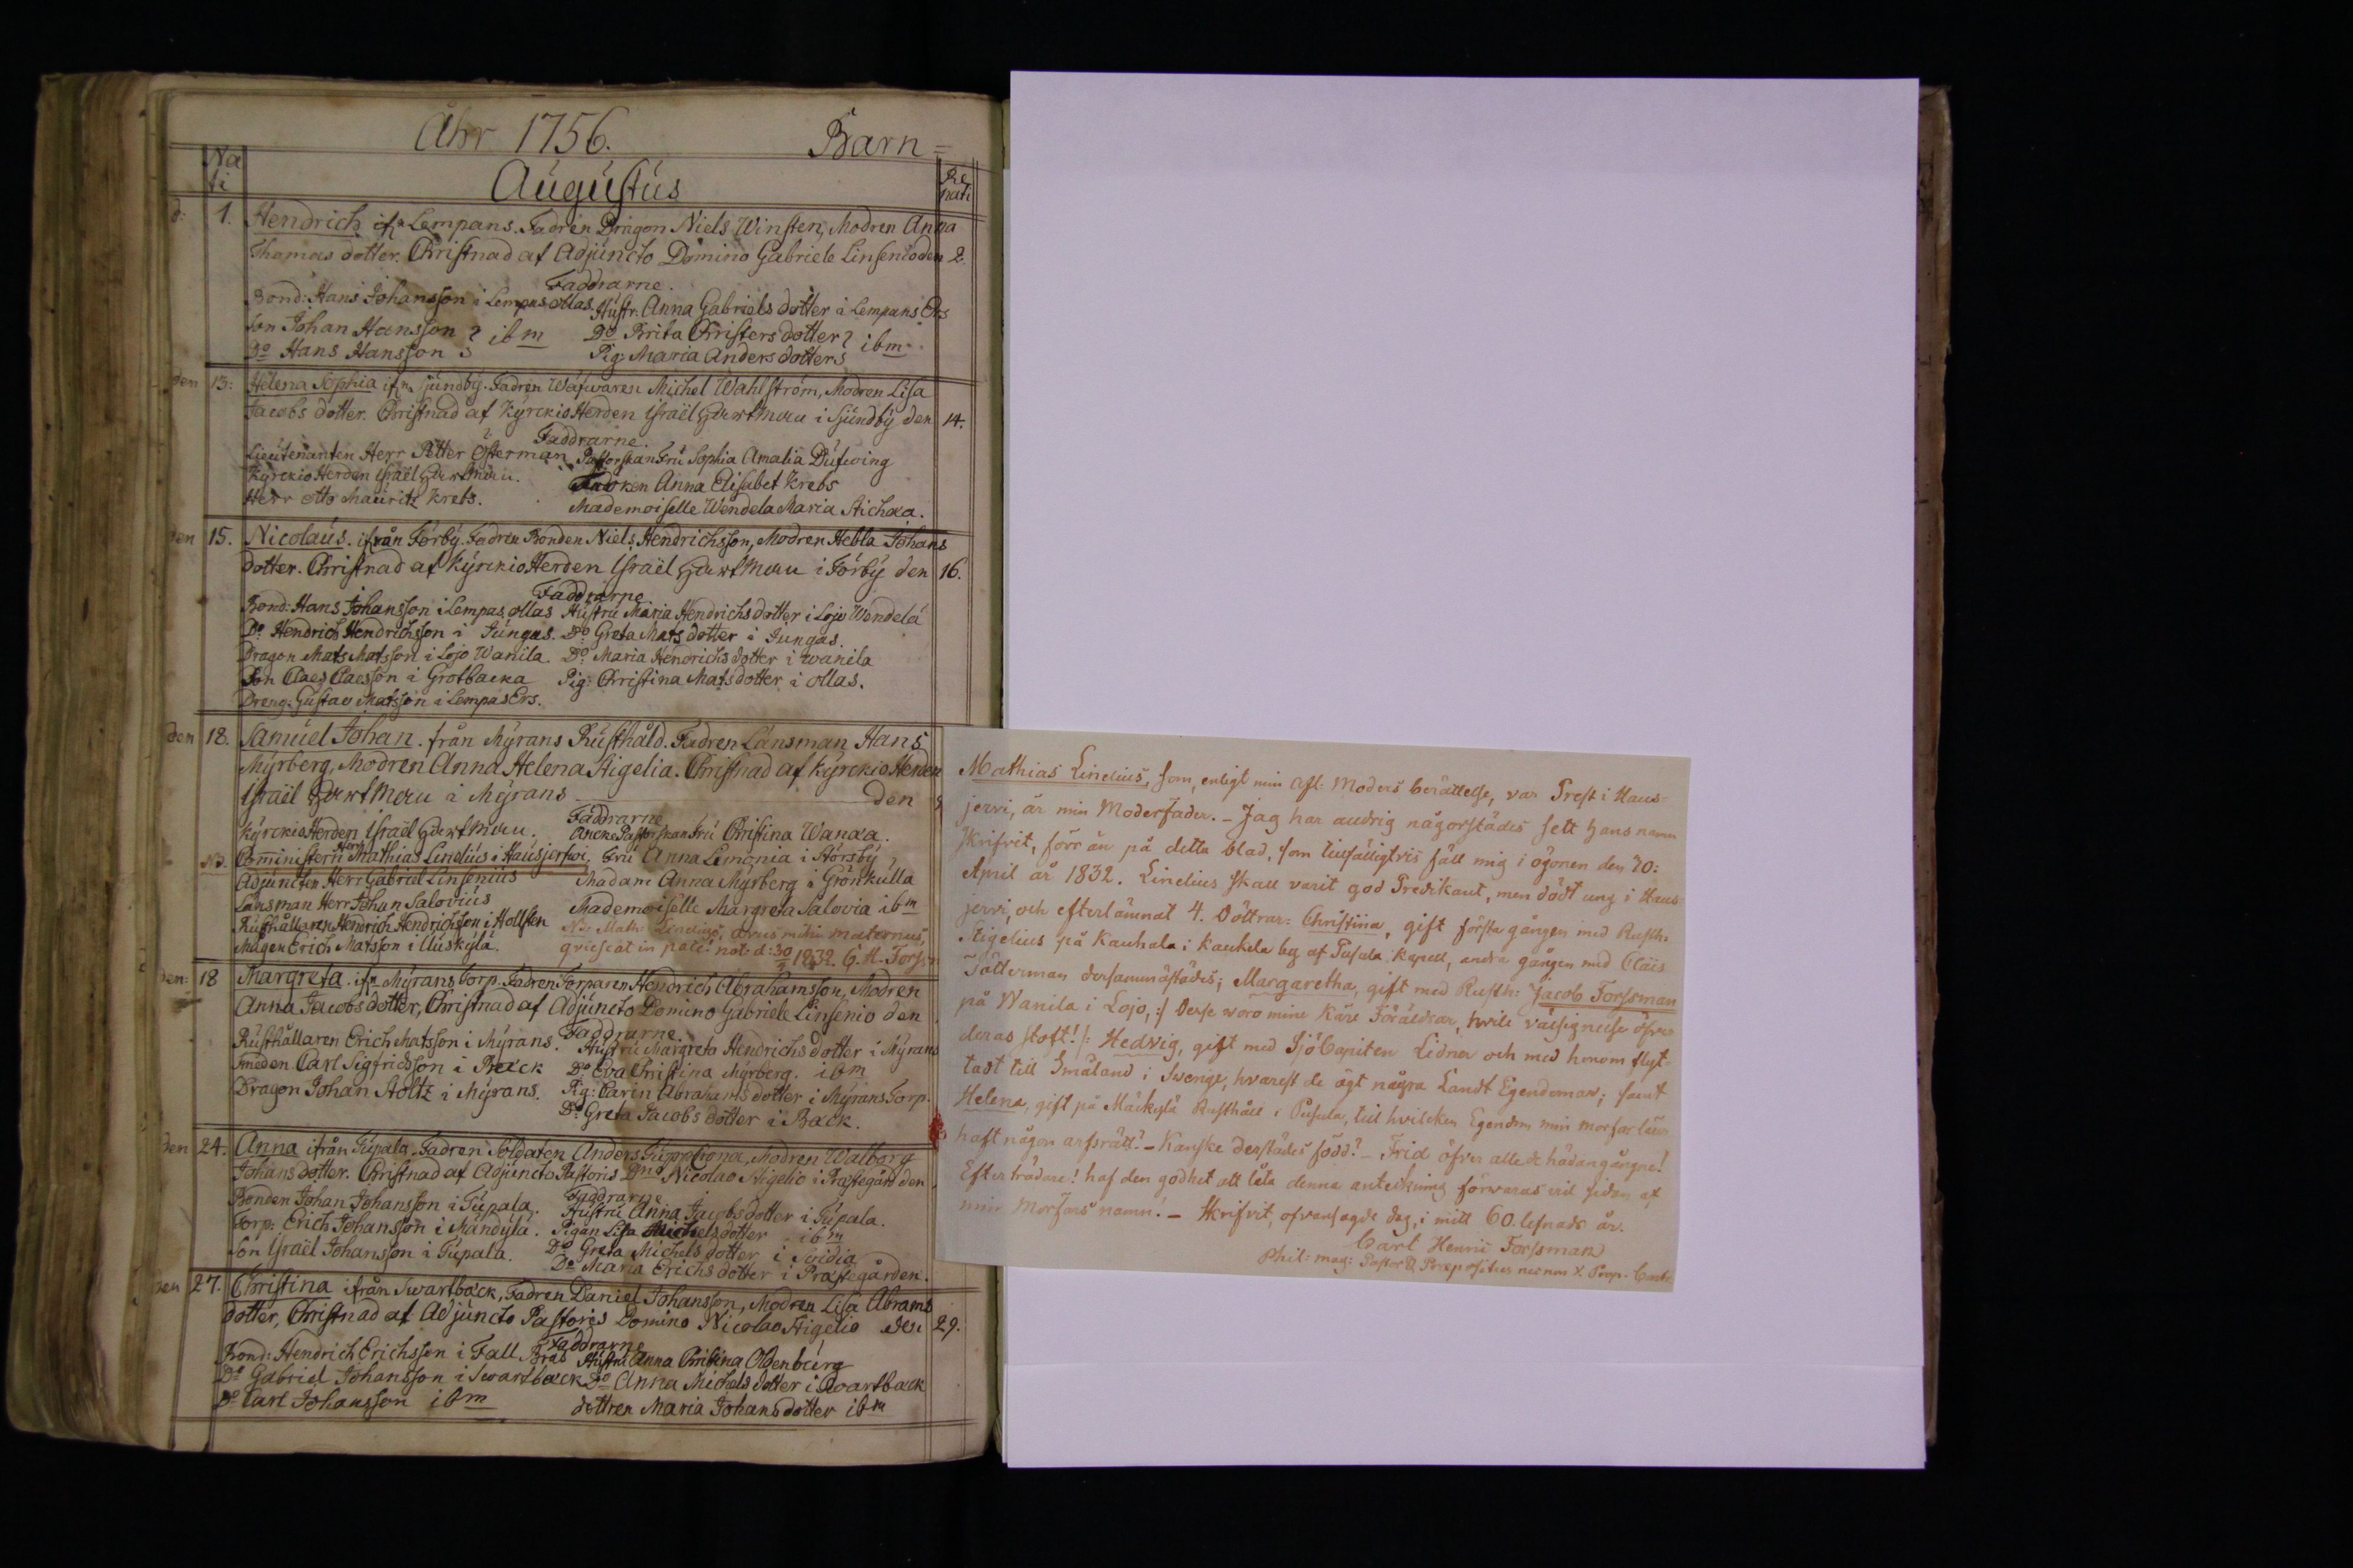 Åhr 1756. Barn=
Na
ti
Augustus
Re
nati
d: 1. Hendrich ifr Lempans. Fadren Dragon Niels Winsten, Modren Anna
Thomas dotter. Christnad af Adjuncto Domino Gabriele Linsenio den 2.
Faddrarne.
Bond: Hans Johansson i Lempas ollas. Hustr: Anna Gabriels dotter i Lempans Ers
Son Johan Hansson } ibm Do Brita Christers dotter } ibm
Do Hans Hansson Pig: Maria Anders dotter
den 13: Helena Sophia ifrn Sjundby. Fadren Wäfwaren Michel Wahlström, Modren Lisa
Jacobs dotter. Christnad af KyrckioHerden Israël Hartman i Sjundby den 14.
Faddrarne.
Lieutenanten Herr Petter Österman Pastorskan Fru Sophia Amalia Dufwing
KyrckioHerden Israël Hartman. Fröken Anna Elisabet Krebs
Herr Otto Mauritz Krebs. Mademoiselle Wendela Maria Stichæa.
den 15. Nicolaus. ifrån Förby. Fadren Bonden Niels Hendrichsson, Modren Hebla Johans
dotter. Christnad af KyrckioHerden Israël Hartman i Förby den 16.
Faddrarne
Bond: Hans Johansson i Lempas ollas Hustru Maria Hendrichs dotter i Lojo Wendelä
Do Hendrich Hendrichsson i Jungas. Do Greta Mats dotter i Jungas.
Dragon Mats Matsson i Lojo Wanila. Do Maria Hendrichs dotter i wanila
Son Claes Claesson i Grotbacka Pig: Christina Mats dotter i ollas.
Dreng. Gustav Matsson i Lempas Ers.
den 18. Samuel Johan. från Myrans Rusthåld. Fadren Länsman Hans
Myrberg, Modren Anna Helena Stigelia. Christnad af KyrckioHerden
Israël Hartman i Myrans den
Faddrarne
KyrckioHerden Israël Hartman. Ancke Pastorskan Fru Christina Wanæa.
NB. Comministern Herr Mathias Lindlius i Hausjerfwi. Fru Anna Lemonia i Störsby
Adjuncten Herr Gabriel Linsenius Madam Anna Myrberg i Grönkulla
Länsman Herr Johan Salovius Mademoiselle Margreta Salovia ibm
Rusthållaren Hendrich Hendrichsson i Hollsen NB. Math: Linelius, avus mihi maternus,
Mågen Erich Matsson i Uuskylä. qviescat in pace! not. d: 30/4 1832. C. H. Forssn
den: 18 Margreta. ifrn Myrans Torp. Fadren Torparen Hendrich Abrahamsson, Modren
Anna Jacobs dotter, Christnad af Adjuncto Domino Gabriele Linsenio den
Faddrarne.
Rusthållaren Erich Matsson i Myrans. Hustru Margreta Hendrichs dotter i Myrans
Smeden Carl Sigfridsson i Beck Do Eva Christina Myrberg. ibm
Dragon Johan Stoltz i Myrans. Pig: Carin Abrahams dotter i Myrans Torp.
Do Greta Jacobs dotter i Back.
den 24. Anna ifrån Tupala. Fadren Soldaten Anders, Modren Walborg
Johans dotter. Christnad af Adjuncto Pastoris Dno Nicolao Stigelio i Prästegård den
Faddrarne
Bonden Johan Johansson i Tupala. Hustru Anna Jacobs dotter i Tupala.
Torp: Erich Johansson i Mändylä. Pigan Lisa Michels dotter ibm
Son Israël Johansson i Tupala. Do Greta Michels dotter i Svidia
Do Maria Erichs dotter i Prästegården.
den 27. Christina ifrån Swartback, Fadren Daniel Johansson, Modren Lisa Abrams
dotter, Christnad af Adjuncto Pastoris Domino Nicolao Stigelio den 29.
Faddrarne
Bond: Hendrich Erichsson i Fall Hustru Anna Christina Oldenburg
Do Gabriel Johansson i Swartback Do Anna Michels dotter i Svartback
Do Carl Johansson ibm dottren Maria Johans dotter ibm
Mathias Linelius, som, enligt min Afl: Moders berättelse, var Prest i Haus=
jervi, är min Moderfader. – Jag har aldrig någorstädes sett hans namn
skrifvit, förr än på detta blad, som tillfälligtvis föll mig i ögonen den 30:
April år 1832. Linelius skall varit god Predikant, men dödt ung i Haus=
jervi, och efterlämnat 4. Döttrar: Christina, gift första gången med Rusth:
Stigelius på Kauhala i Kaukela by af Pusula Kapell, andra gången med Claës
Tötterman dersammastädes; Margaretha, gift med Rusth: Jacob Forssman
på Wanila i Lojo, :/ Desse woro mine Käre Föräldrar, hvile välsignelse öfver
deras stoft! /: Hedvig, gift med SjöCapiten Lidner och med honom flyt=
tadt till Småland i Swerige, hvarest de ägt några Landt Egendomar; samt
Helena, gift på Mäckylä Rusthåll i Pusula, till hvilcken Egendom min morfar lär
haft någon arfsrätt? – Kanske derstädes född? – Frid öfver alle de hädangångne!
Efterträdare! haf den godhet att låta denna anteckning förvaras vid sidan af
min Morfars namn! – Skrifvit, ofvansagde dag, i mitt 60. lefnads år.
Carl Henric Forssman
Phil: mag: Pastor & Præpositus